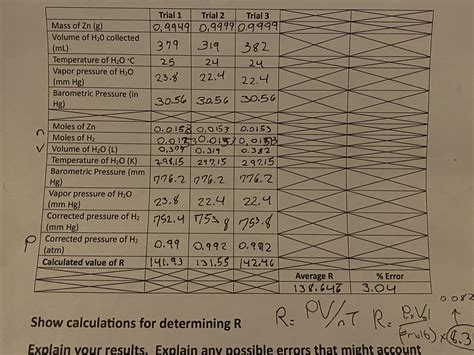 Trial 1 Trial 2 Trial 3
Mass of Zn (g) 0.9949 0.9999 0.9999
Volume of H2O collected (mL) 379 319 382
Temperature of H2O °C 25 24 24
Vapor pressure of H2O (mm Hg) 23.8 22.4 22.4
Barometric Pressure (in Hg) 30.56 30.56 30.56
n Moles of Zn 0.0158 0.0153 0.0153
Moles of H2
V Volume of H2O (L) 0.379 0.319 0.382
Temperature of H2O (K) 298.15 297.15 297.15
Barometric Pressure (mm Hg) 776.2 776.2 776.2
Vapor pressure of H2O (mm Hg) 23.8 22.4 22.4
Corrected pressure of H2 (mm Hg) 752.4 753.8 753.8
P Corrected pressure of H2 (atm) 0.99 0.992 0.992
Calculated value of R 141.93 131.55 142.46
Average R % Error
138.646 3.04
0.082
Show calculations for determining R R= PV/nT R=
Explain your results. Explain any possible errors that might account